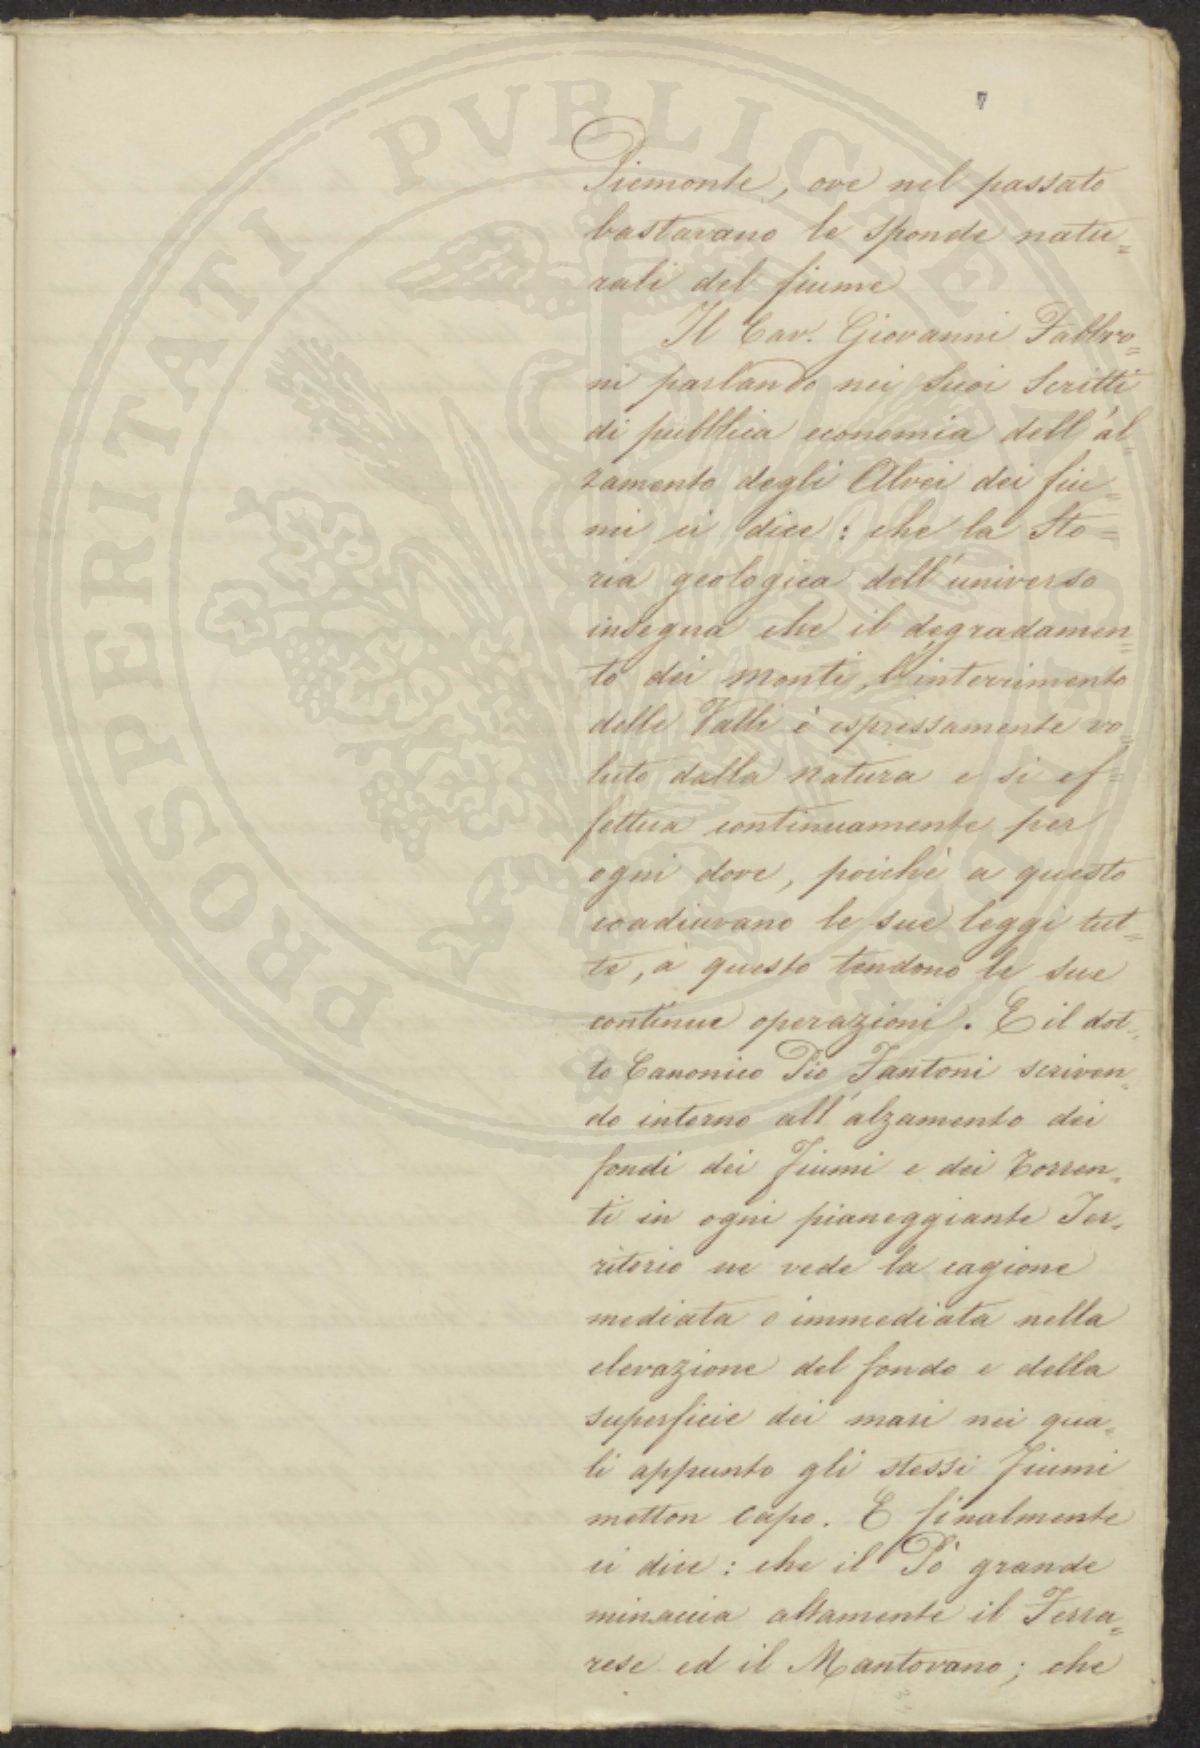 7
Piemonte, ove nel passato
bastavano le sponde natu=
rali del fiume
Il Cav. Giovanni Fabbro=
ni parlando nei suoi Scritti
di pubblica economia dell'al
zamento degli Alvei dei fiu=
mi ci dice: che la Sto=
ria geologica dell'universo
insegna che il degradamen=
to dei monti, l'interrimento
delle Valli è espressamente vo=
luto dalla natura e si ef=
fettua continuamente per
ogni dove, poichè a questo
coadiuvano le sue leggi tut=
te, a questo tendono le sue
continue operazioni. E il dot=
to Canonico Pio Fantoni scriven=
do intorno all'alzamento dei
fondi dei Fiumi e dei Torren=
ti in ogni pianeggiante Ter=
ritorio ne vede la cagione
mediata o immediata nella
elevazione del fondo e della
superficie dei mari nei qua=
li appunto gli stessi Fiumi
metton capo. E finalmente
ci dice: che il Pò grande
minaccia altamente il Ferra=
rese ed il Mantovano; che
PROSPERITATI PVBLICAE AVGENDAE